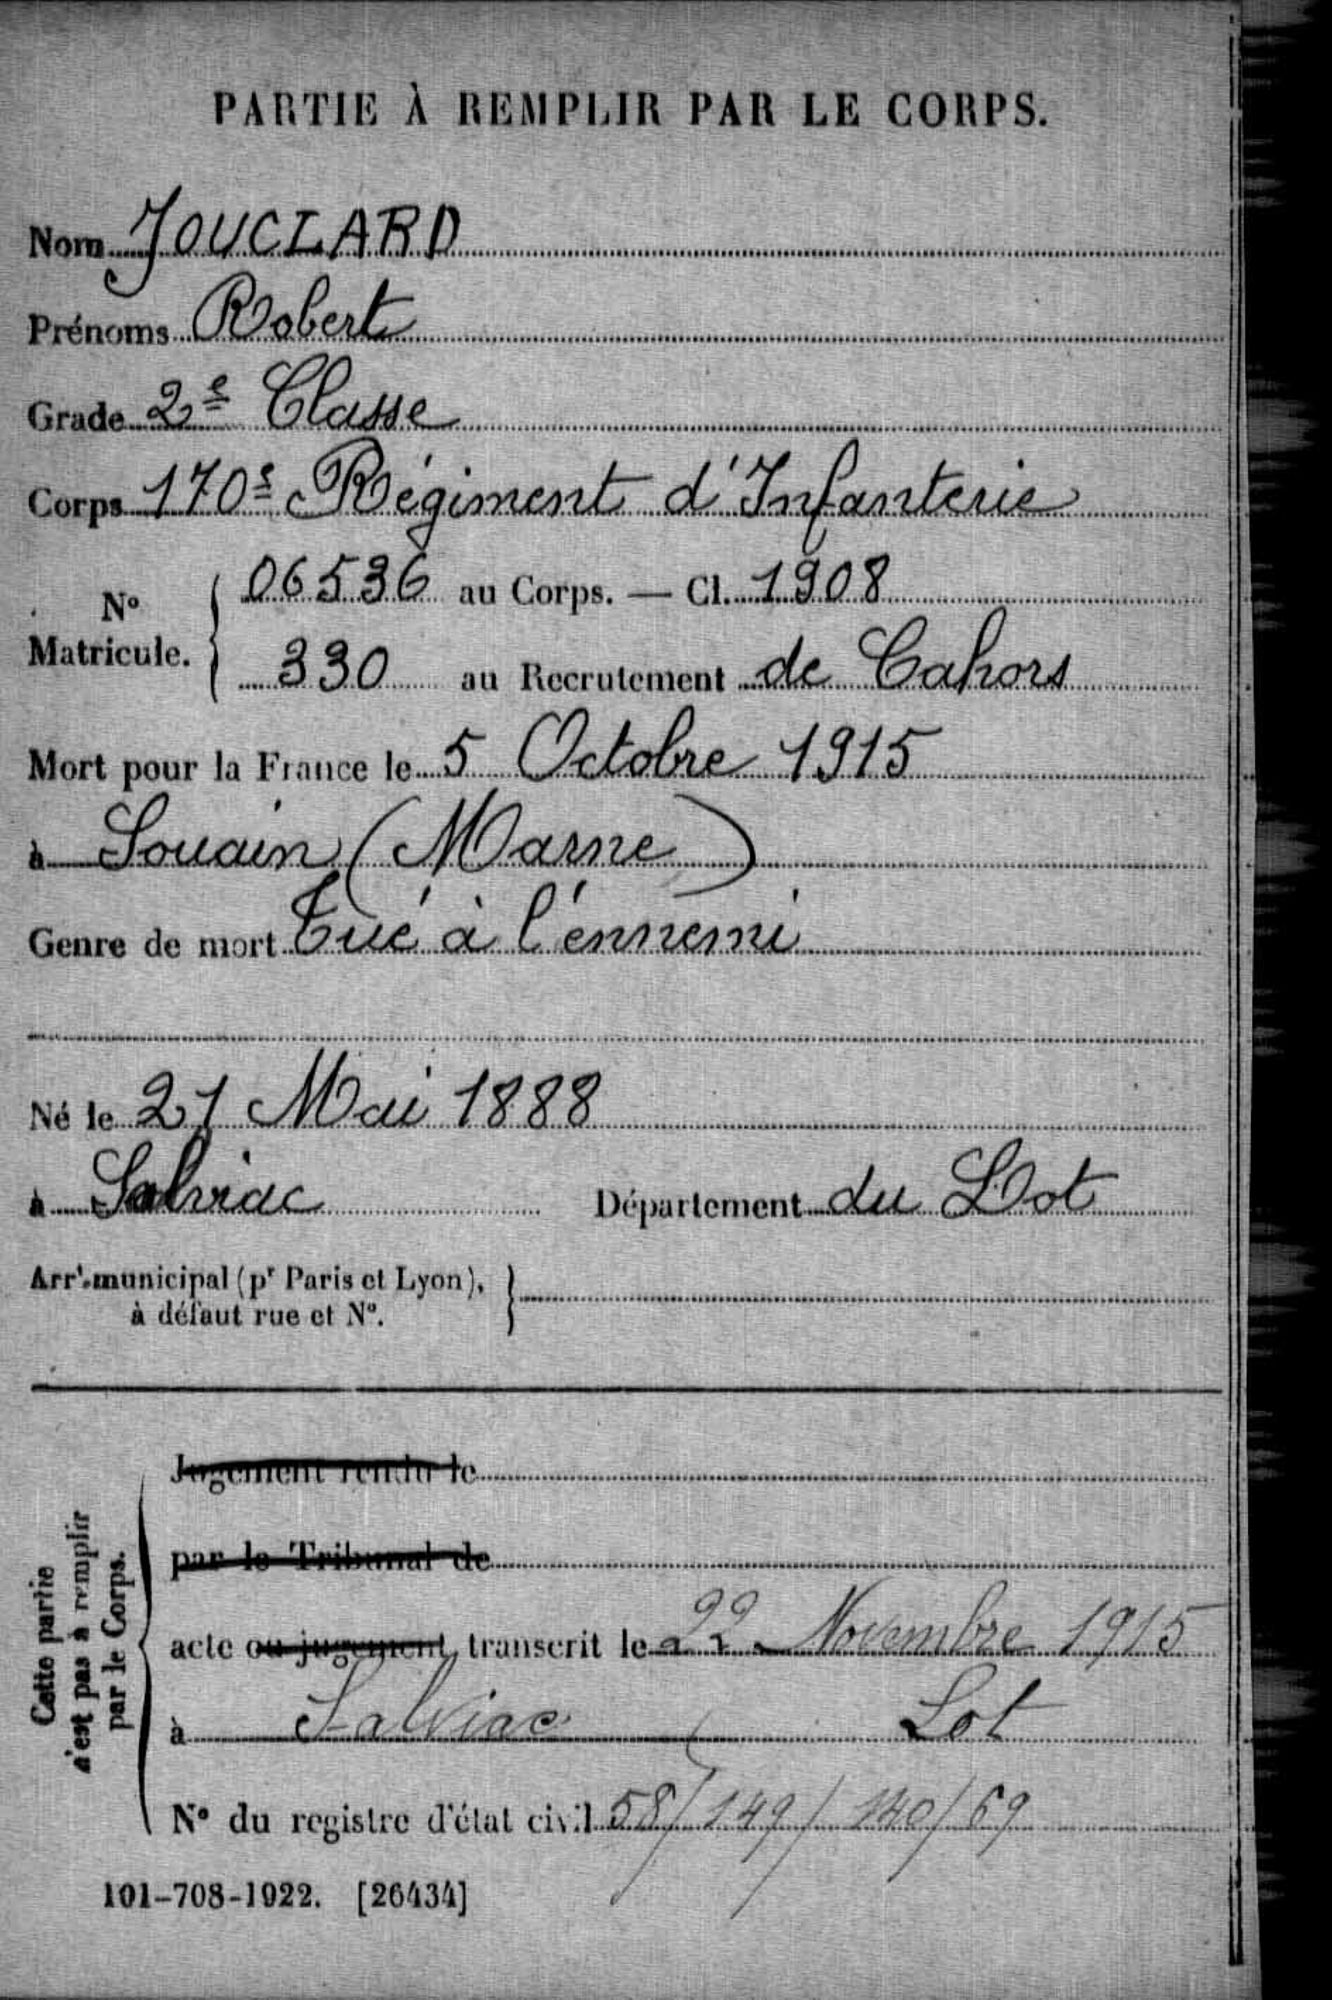 PARTIE À REMPLIR PAR LE CORPS.
Nom JOUCLARD
Prénoms Robert
Grade 2e Classe
Corps 170e Régiment d'Infanterie
No Matricule. { 06536 au Corps. — Cl. 1908
330 au Recrutement de Cahors
Mort pour la France le 5 Octobre 1915
à Souain (Marne)
Genre de mort Tué à l'ennemi
Né le 21 Mai 1888
à Salviac Département du Lot
Arrt municipal (pr Paris et Lyon), }
à défaut rue et No.
Cette partie
n'est pas à remplir
par le Corps.
Jugement rendu le
par le Tribunal de
acte ou jugement transcrit le 22 Novembre 1915
à Salviac Lot
No du registre d'état civil 58/149/140/69
101-708-1922. [26434]